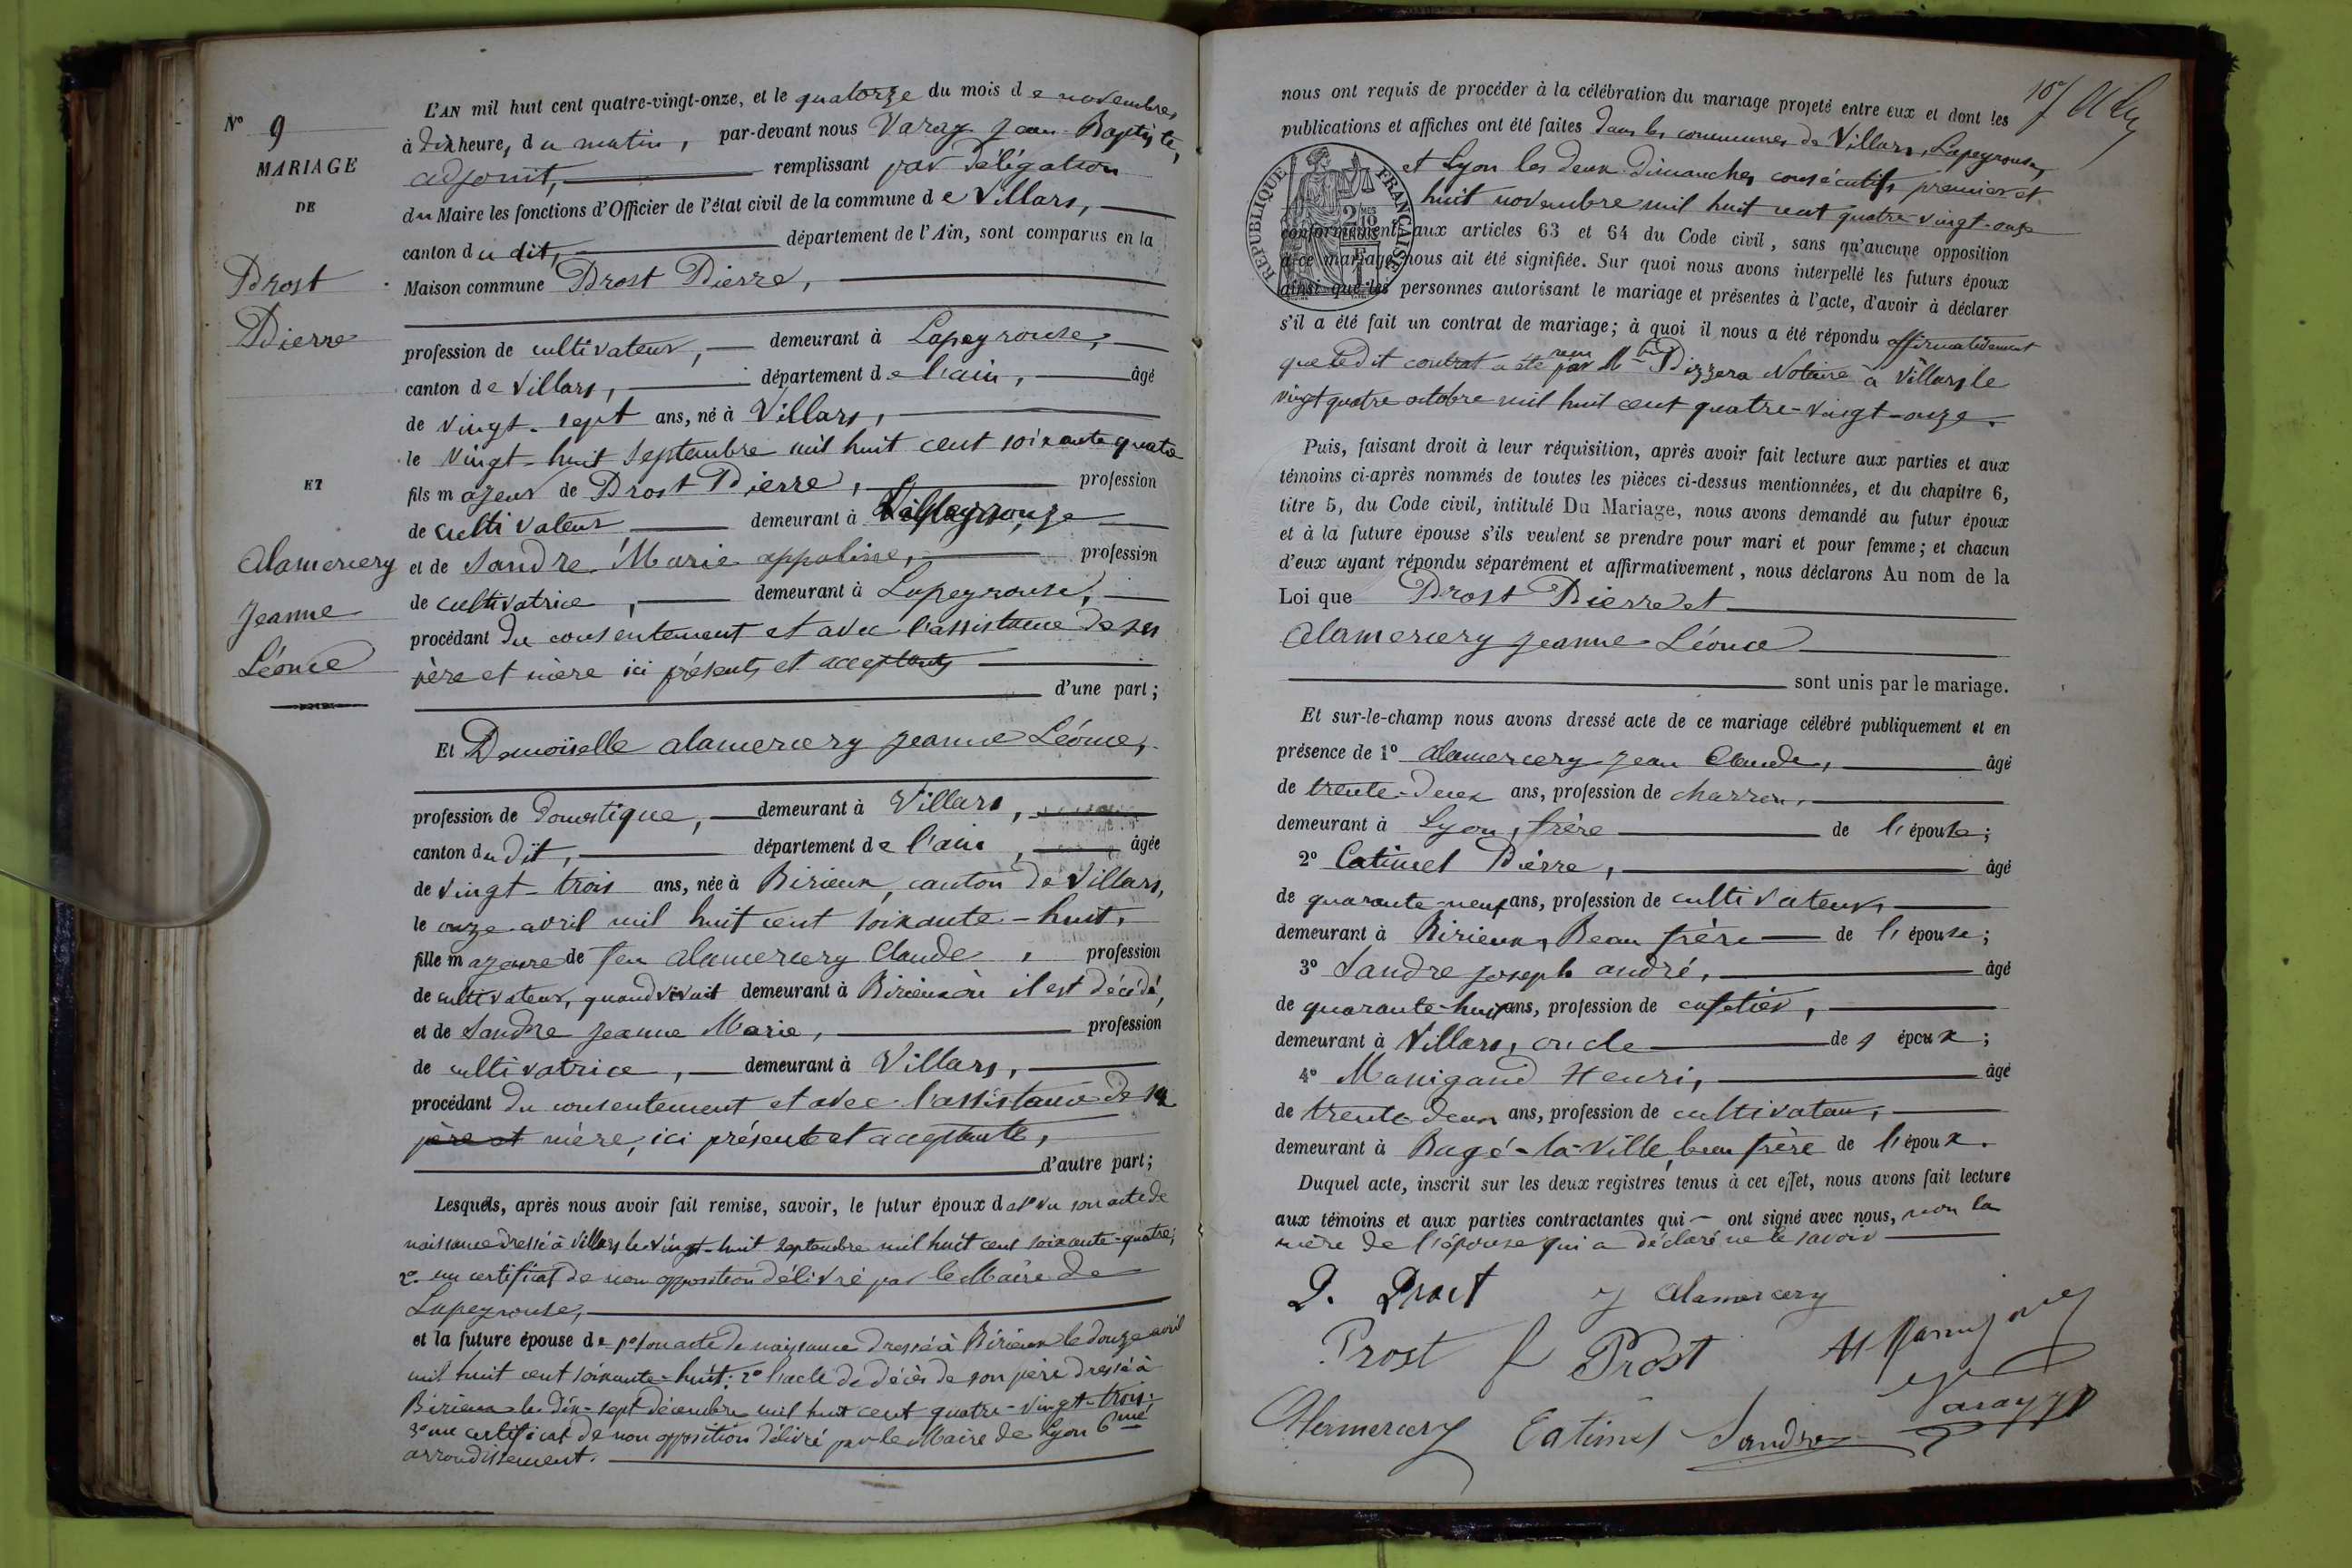 N° 9
MARIAGE
DE
Prost
Pierre
ET
Alamercery
Jeanne
Léonce
L'AN mil huit cent quatre-vingt-onze, et le quatorze du mois de novembre
à dix heure, du matin, par-devant nous Varay Jean-Baptiste,
adjoint, remplissant par délégation
du Maire les fonctions d'Officier de l'état civil de la commune de Villars,
canton du dit, département de l'Ain, sont comparus en la
Maison commune Prost Pierre,
profession de cultivateur, demeurant à Lapeyrouse,
canton de Villars, département de l'ain, âgé
de vingt-sept ans, né à Villars,
le vingt-huit septembre mil huit cent soixante quatre
fils majeur de Prost Pierre, profession
de cultivateur, demeurant à Lapeyrouse
et de Sandre Marie appoline, profession
de cultivatrice, demeurant à Lapeyrouse,
procédant du consentement et avec l'assistance de ses
père et mère ici présents et acceptants
d'une part;
Et Demoiselle Alamercery Jeanne Léonce,
profession de domestique, demeurant à Villars,
canton du dit, département de l'ain, âgée
de vingt-trois ans, née à Birieux, canton de Villars,
le onze avril mil huit cent soixante-huit,
fille majeure de feu Alamercery Claude, profession
de cultivateur, quand vivait demeurant à Birieux où il est décédé,
et de Sandre Jeanne Marie, profession
de cultivatrice, demeurant à Villars,
procédant du consentement et avec l'assistance de sa
père et mère, ici présente et acceptante,
d'autre part;
Lesquels, après nous avoir fait remise, savoir, le futur époux de 1° vu son acte de
naissance dressé à Villars le vingt-huit septembre mil huit cent soixante-quatre;
2° un certificat de non opposition délivré par le Maire de
Lapeyrouse,
et la future épouse de 1° son acte de naissance dressé à Birieux le douze avril
mil huit cent soixante-huit; 2° l'acte de décès de son père dressé à
Birieux le dix-sept décembre mil huit cent quatre-vingt-trois;
3° un certificat de non opposition délivré par le Maire de Lyon 6me
arrondissement.
10/
nous ont requis de procéder à la célébration du mariage projeté entre eux et dont les
publications et affiches ont été faites dans les communes de Villars, Lapeyrouse,
et Lyon les deux dimanches consécutifs premier et
huit novembre mil huit cent quatre-vingt-onze
RÉPUBLIQUE FRANÇAISE
conformément aux articles 63 et 64 du Code civil, sans qu'aucune opposition
à ce mariage nous ait été signifiée. Sur quoi nous avons interpellé les futurs époux
ainsi que les personnes autorisant le mariage et présentes à l'acte, d'avoir à déclarer
s'il a été fait un contrat de mariage; à quoi il nous a été répondu affirmativement
que ledit contrat a été reçu par Me Pizzera Notaire à Villars le
vingt quatre octobre mil huit cent quatre-vingt-onze.
Puis, faisant droit à leur réquisition, après avoir fait lecture aux parties et aux
témoins ci-après nommés de toutes les pièces ci-dessus mentionnées, et du chapitre 6,
titre 5, du Code civil, intitulé Du Mariage, nous avons demandé au futur époux
et à la future épouse s'ils veulent se prendre pour mari et pour femme; et chacun
d'eux ayant répondu séparément et affirmativement, nous déclarons Au nom de la
Loi que Prost Pierre et
Alamercery Jeanne Léonce
sont unis par le mariage.
Et sur-le-champ nous avons dressé acte de ce mariage célébré publiquement et en
présence de 1° Alamercery Jean Claude, âgé
de trente-deux ans, profession de charron,
demeurant à Lyon, frère de l'épouse;
2° Catimel Pierre, âgé
de quarante-neuf ans, profession de cultivateur,
demeurant à Birieux, Beau frère de l'épouse;
3° Sandre Joseph André, âgé
de quarante-huit ans, profession de cafetier,
demeurant à Villars, oncle de l'époux;
4° Manigand Henri, âgé
de trente deux ans, profession de cultivateur,
demeurant à Bagé-la-Ville, beau frère de l'époux.
Duquel acte, inscrit sur les deux registres tenus à cet effet, nous avons fait lecture
aux témoins et aux parties contractantes qui ont signé avec nous, non la
mère de l'épouse qui a déclaré ne le savoir
P. Prost J Alamercery
Prost f Prost H Manigand
Alamercery Catimel Sandre Varay